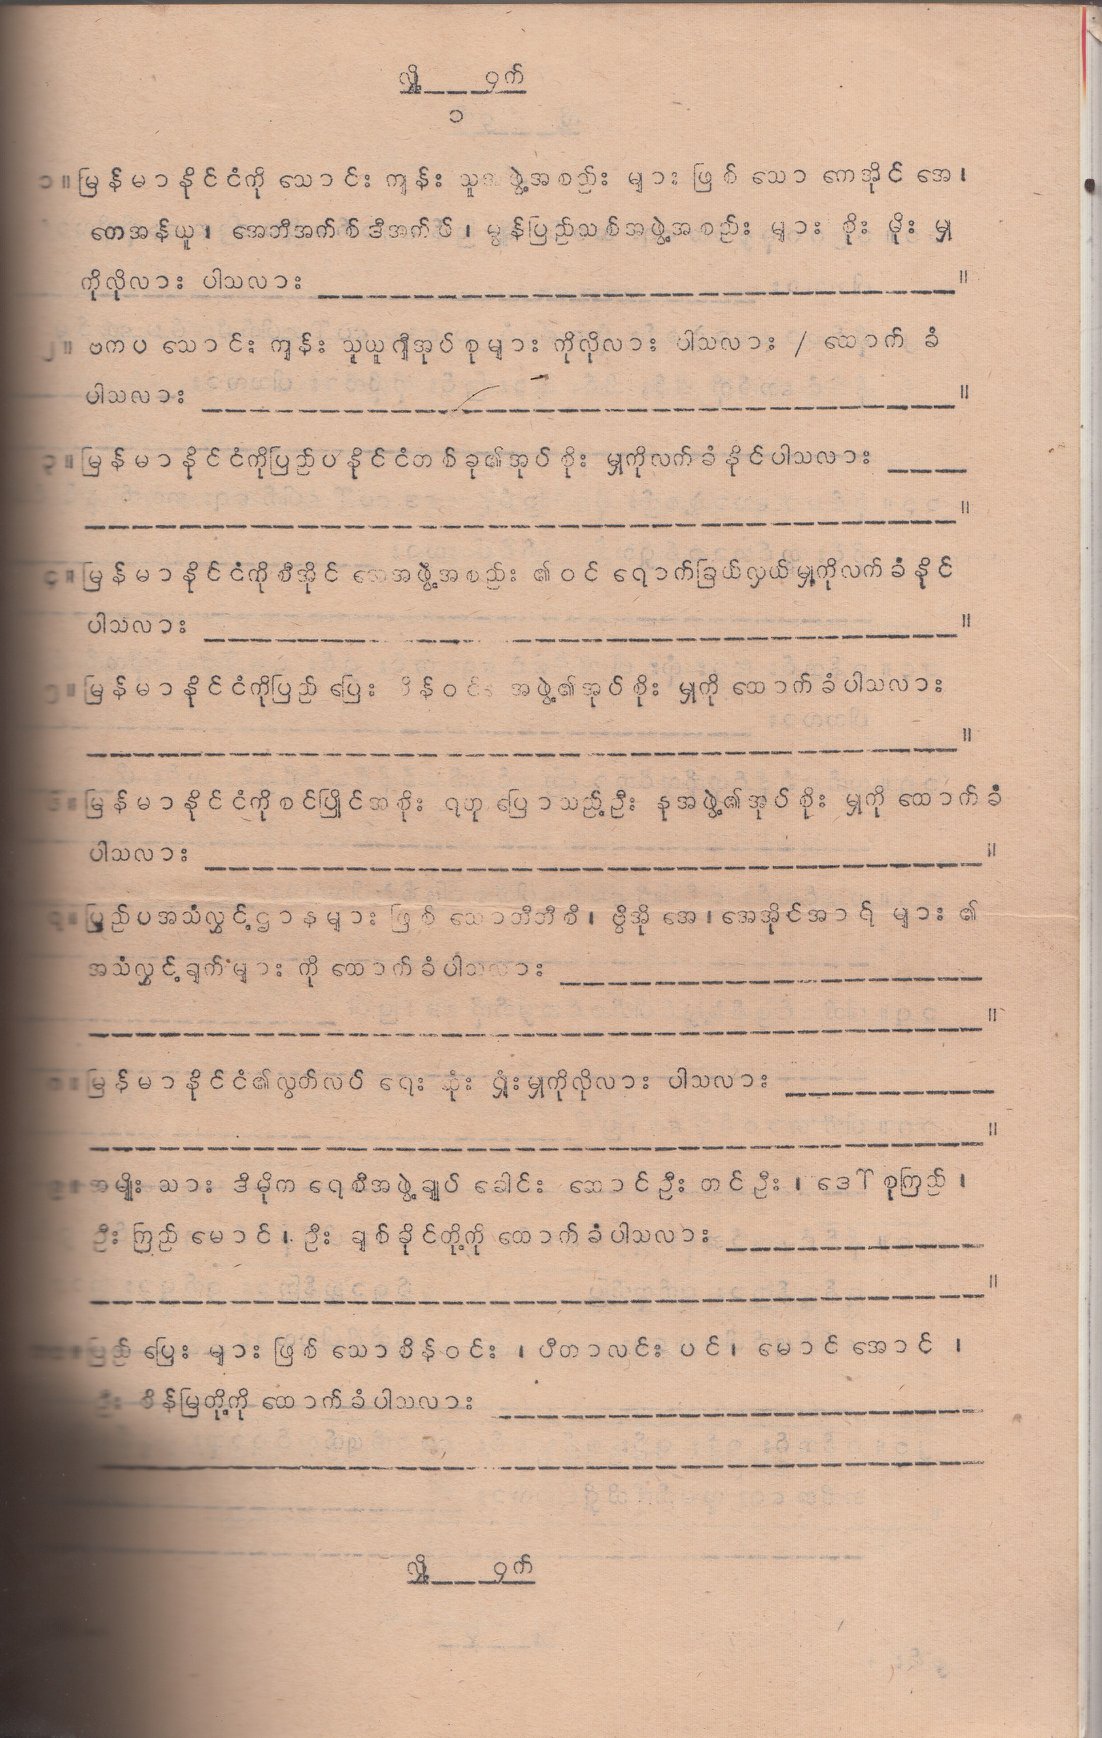 လျှို့___ဝှက်
၁
၁။ မြန်မာနိုင်ငံကို သောင်းကျန်းသူအဖွဲ့အစည်းများဖြစ်သော ကေအိုင်အေ၊
ကေအန်ယူ၊ အေဘီအက်စ်ဒီအက်ဖ်၊ မွန်ပြည်သစ်အဖွဲ့အစည်းများ စိုးမိုးမှု
ကိုလိုလားပါသလား ____________________။
၂။ ဗကပ သောင်းကျန်းသူယူဂျီအုပ်စုများကိုလိုလားပါသလား / ထောက်ခံ
ပါသလား ____________________။
၃။ မြန်မာနိုင်ငံကိုပြည်ပနိုင်ငံတစ်ခု၏အုပ်စိုးမှုကိုလက်ခံနိုင်ပါသလား ____
____________________။
၄။ မြန်မာနိုင်ငံကိုစီအိုင်အေအဖွဲ့အစည်း၏ဝင်ရောက်ခြယ်လှယ်မှုကိုလက်ခံနိုင်
ပါသလား ____________________။
၅။ မြန်မာနိုင်ငံကိုပြည်ပြေး စိန်ဝင်းအဖွဲ့၏အုပ်စိုးမှုကို ထောက်ခံပါသလား
____________________။
၆။ မြန်မာနိုင်ငံကိုစင်ပြိုင်အစိုးရဟုပြောသည့်ဦးနုအဖွဲ့၏အုပ်စိုးမှုကို ထောက်ခံ
ပါသလား ____________________။
၇။ ပြည်ပအသံလွှင့်ဌာနများဖြစ်သောဘီဘီစီ၊ ဗွီအိုအေ၊ အေအိုင်အာရ်များ၏
အသံလွှင့်ချက်များကို ထောက်ခံပါသလား ____________
____________________။
၈။ မြန်မာနိုင်ငံ၏လွတ်လပ်ရေး ဆုံးရှုံးမှုကိုလိုလားပါသလား ______
____________________။
၉။ အမျိုးသားဒီမိုကရေစီအဖွဲ့ချုပ်ခေါင်းဆောင်ဦးတင်ဦး၊ ဒေါ်စုကြည်၊
ဦးကြည်မောင်၊ ဦးချစ်ခိုင်တို့ကို ထောက်ခံပါသလား ________
____________________။
၁၀။ ပြည်ပြေးများဖြစ်သောစိန်ဝင်း၊ ပီတာလင်းပင်၊ မောင်အောင်၊
ဦးစိန်မြတို့ကို ထောက်ခံပါသလား ______________
____________________
လျှို့___ဝှက်